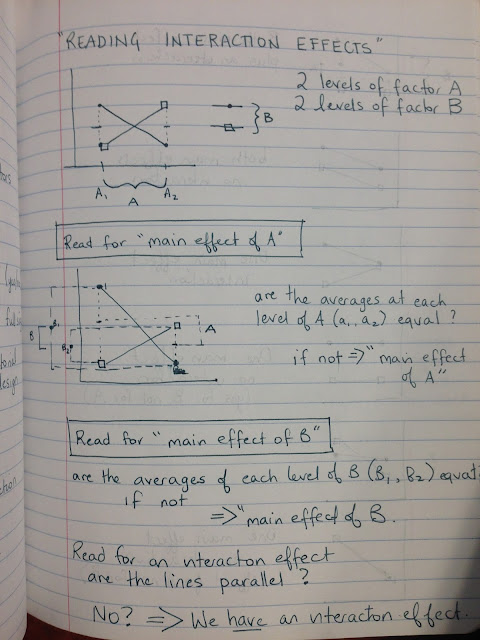 "READING INTERACTION EFFECTS"
2 levels of factor A
2 levels of factor B
B
A1 A2
A
Read for "main effect of A"
are the averages at each
level of A (a1, a2) equal?
if not => "main effect
of A"
A
B
B1
B2
Read for "main effect of B"
are the averages of each level of B (B1, B2) equal
if not
=> "main effect of B.
Read for an nteraction effect
are the lines parallel?
No? => We have an nteracton effect.